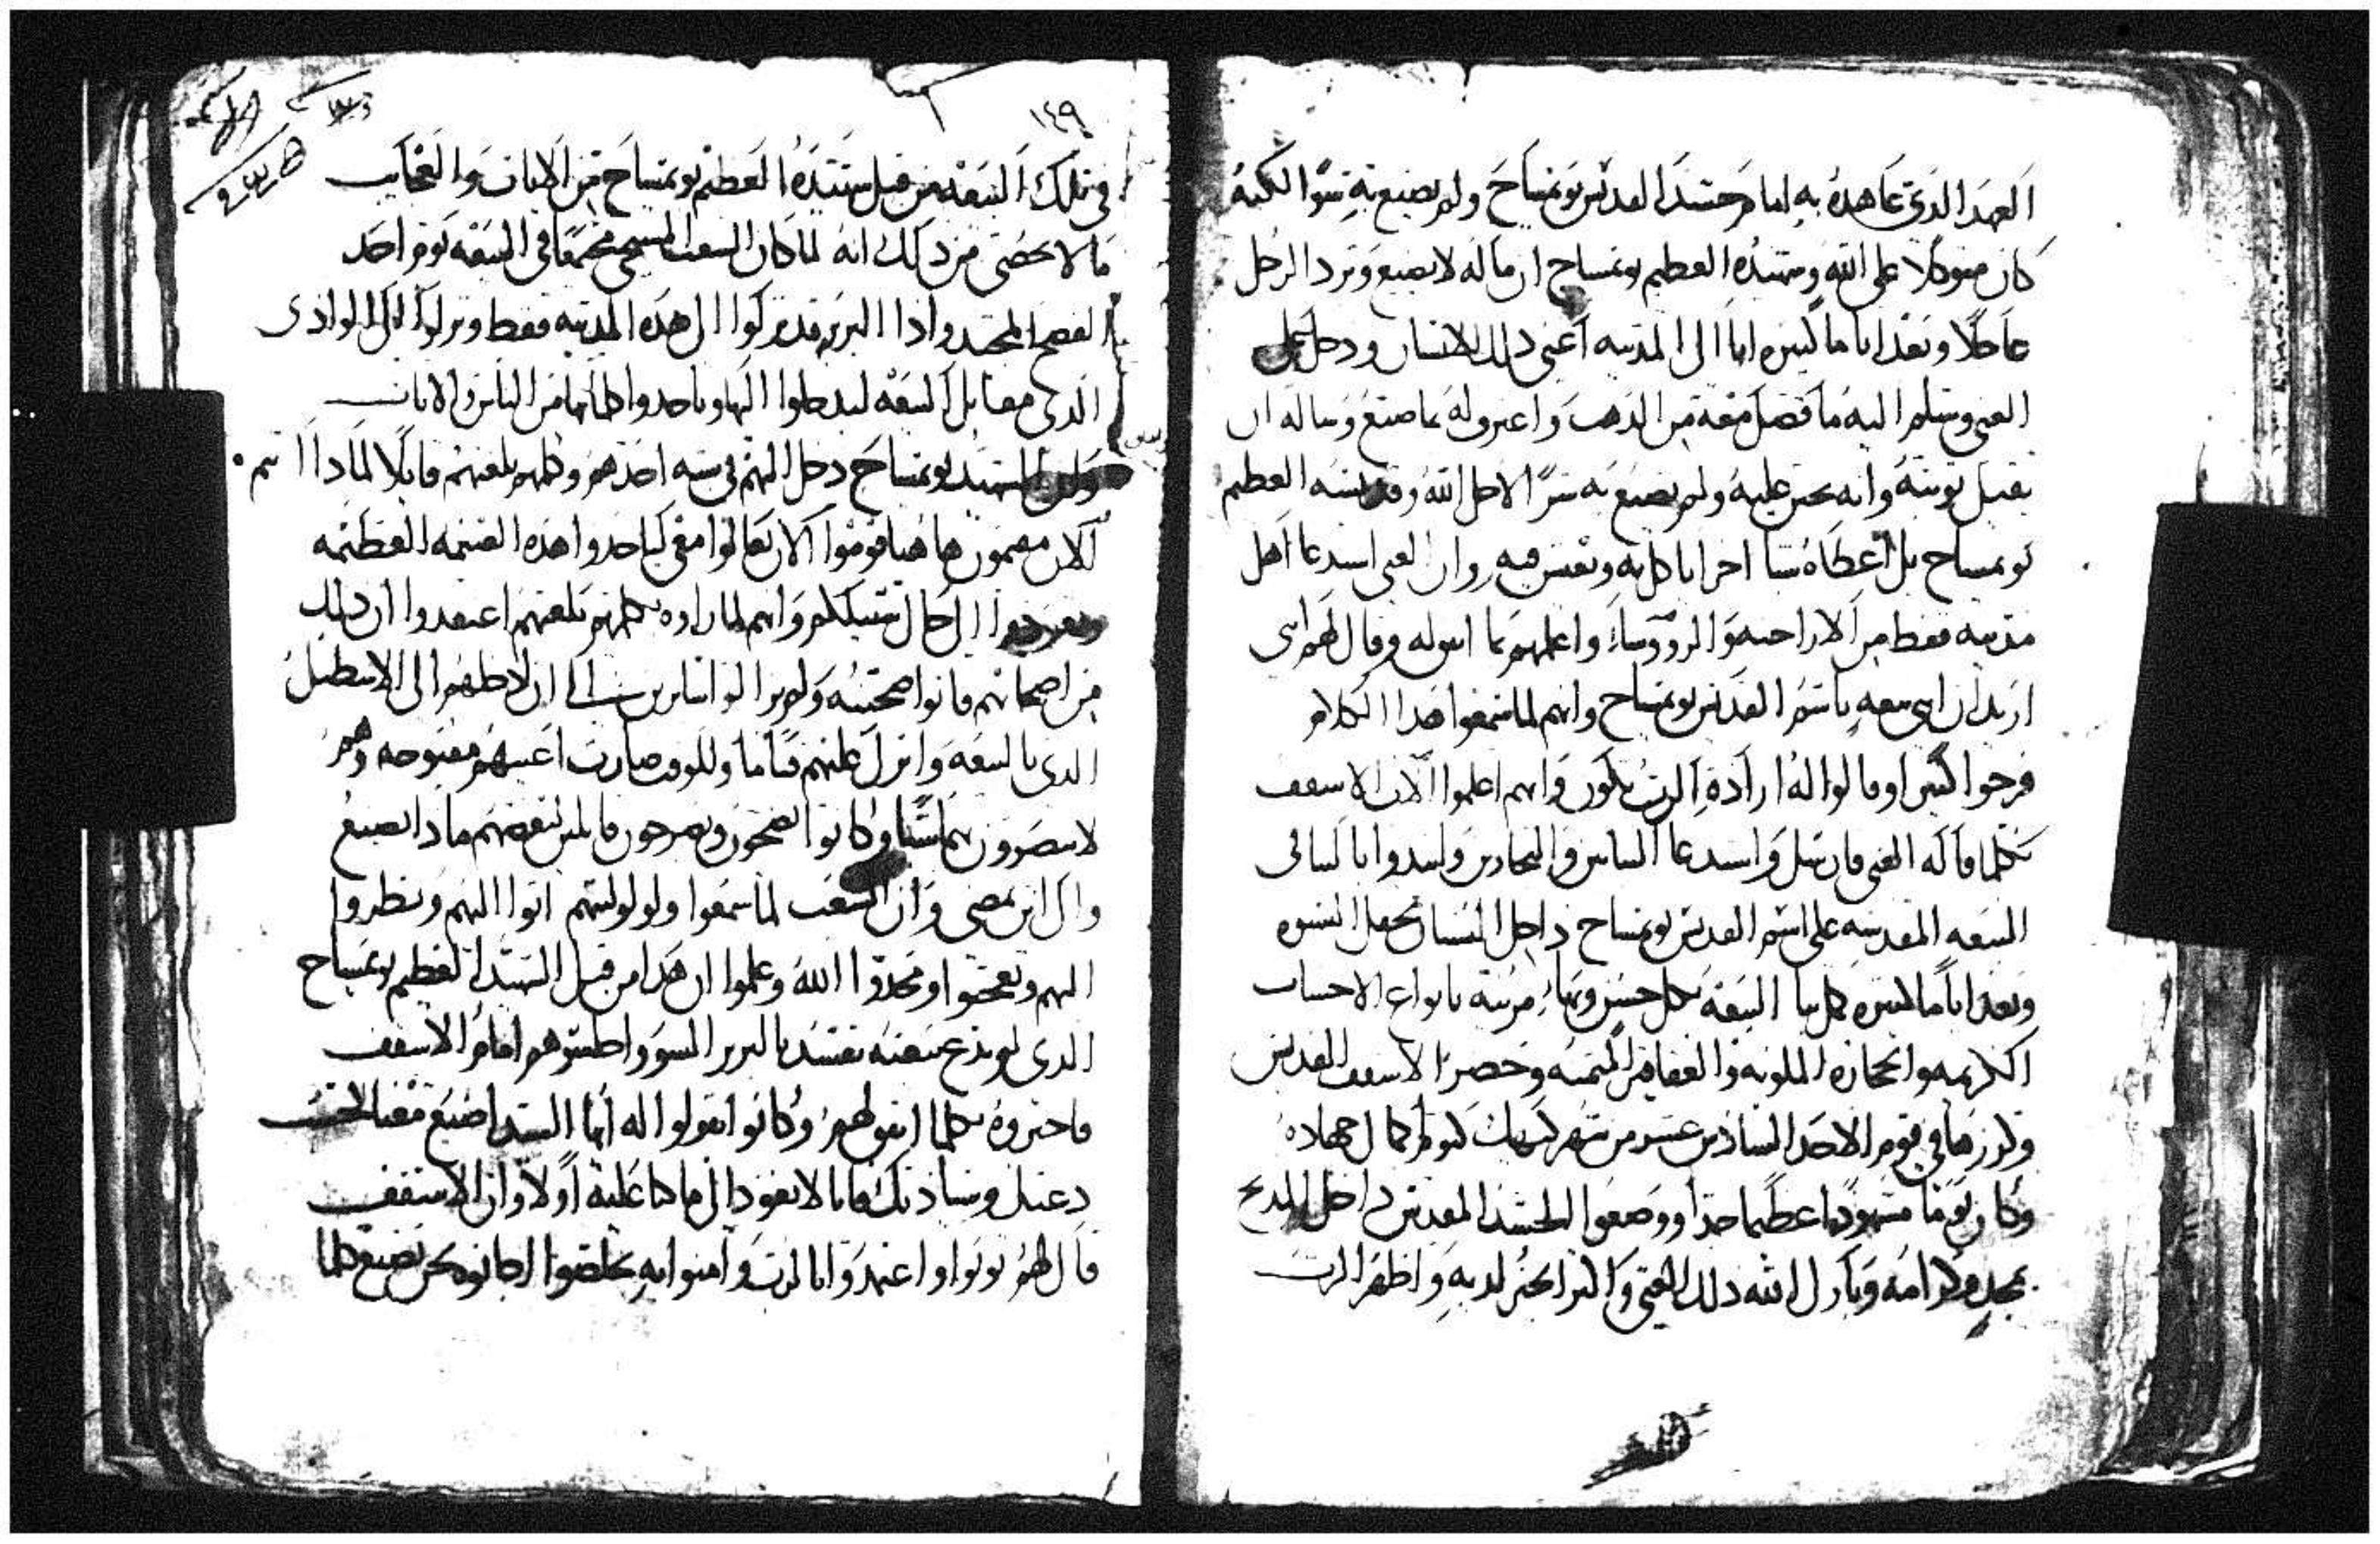 العهد الذى عاهده به امام جسد القديس بويمساح ولم يصنع به شوا لكنه
كان متوكلا على الله وشهيده العظيم بويمساح ان ماله لا يضيع وترد الرجل
عاجلا وبعد اياما كثيره اتا الى المدينه اعنى ذلك الانسان ودخل على
الغنى وسلم اليه ما فضل معه من الذهب واعترف له بما صنع وساله ان
يقبل توبته وانه تحنن عليه ولم يصنع به شرا لاجل الله وقديسه العظيم
بويمساح بل اعطاه شيا اخر اياكل به ويعيش فيه وان الغنى استدعا اهل
مدينه فقط من الاراخنه والرووسا واعلمهم بما اسوله وقال لهم انى
اريد ان ابنى بيعه باسم القديس بويمساح وانهم لما سمعوا هذا الكلام
فرحوا كثيرا وقالوا له ارادة الرب تكون وانهم اعلموا الاب الاسقف
بكلما قاله الغنى فارسل واستدعا البنايين والنجارين وابتدوا يا لبنا فى
البيعه المقدسه على اسم القديس بويمساح داخل البستان بحقل النسوه
وبعد اياما كثيره كمل بنا البيعه بكل حسن وبها مزينه بانواع الاخشاب
الكريمه والحجاره الملونه والعقاقير المثمنه وحضر الاسقف القديس
وكرزها فى يوم الاحد السادس عشر من شهر كيهك كيوم كمال جهاده
وكان يوما مشهودا عظيما جدا ووضعوا الجسد المقدس داخل المذبح
بمجد وكرامه وبارك الله ذلك الغنى واكثر الخير لديه واظهر الرب
١٤٩
فى تلك البيعه من قبل شهيده العظيم بويمساح من الايات والعجايب
ما لا يحصى من ذلك انه لما كان الشعب المسيحى مجتمعا فى البيعه يوم احد
الفصح المجيد واذا البربر قد تركوا الى هذه المدينه فقط ونزلوا الى الوادى
الذى مقابل البيعه ليدخلوا اليها وياخذوا كلما لها من الناس والاوانى
ولكن الشهيد بويمساح دخل اليهم فى شبه احدهم وكلمهم بلغتهم قايلا لماذا انتم
الان مقيمون هاهنا قوموا الان تعالوا معى لناخذوا هذه الغنيمه العظيمه
الى حال سبيلكم وانهم لما راوه كلمهم بلغتهم اعتقدوا ان ذلك
من اصحابهم فاتوا صحبته ولم يزالوا سايرين الى ان ادخلهم الى الاسطبل
الذى بالبيعه وانزل عليهم ظلاما وللوقت صارت اعينهم مفتوحه وهم
لا يبصرون بها شيا وكانوا يضجون ويصرخون قايلين لبعضهم ماذا نصنع
والى اين نمضى وان الشعب لما سمعوا ولولتهم اتوا اليهم ونظروا
اليهم وتعجبوا ومجدوا الله وعلموا ان هذا من قبل الشهيد العظيم بويمساح
الذى لم يدع بيعته تفسد بالبربر السوو واطلبوهم امام الاسقف
فاخبروه بكلما اتفق لهم وكانوا يقولوا له ايها السيد اصنع معنا لاجل
دعتك وسيادتك فاننا لا نعود الى ما كنا عليه اولا وان الاسقف
قال لهم توبوا واعتمدوا بالرب وامنوا به تخلصوا اجابوه نحن نصنع كلما